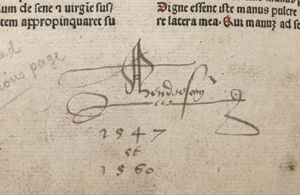 um de sene ⁊ virgĩe sus
tem appropinquaret su
Digne essent iste manus pulcre
re latera mea. Qui manuz ad se
ous page
Henderson
1547
et
1560